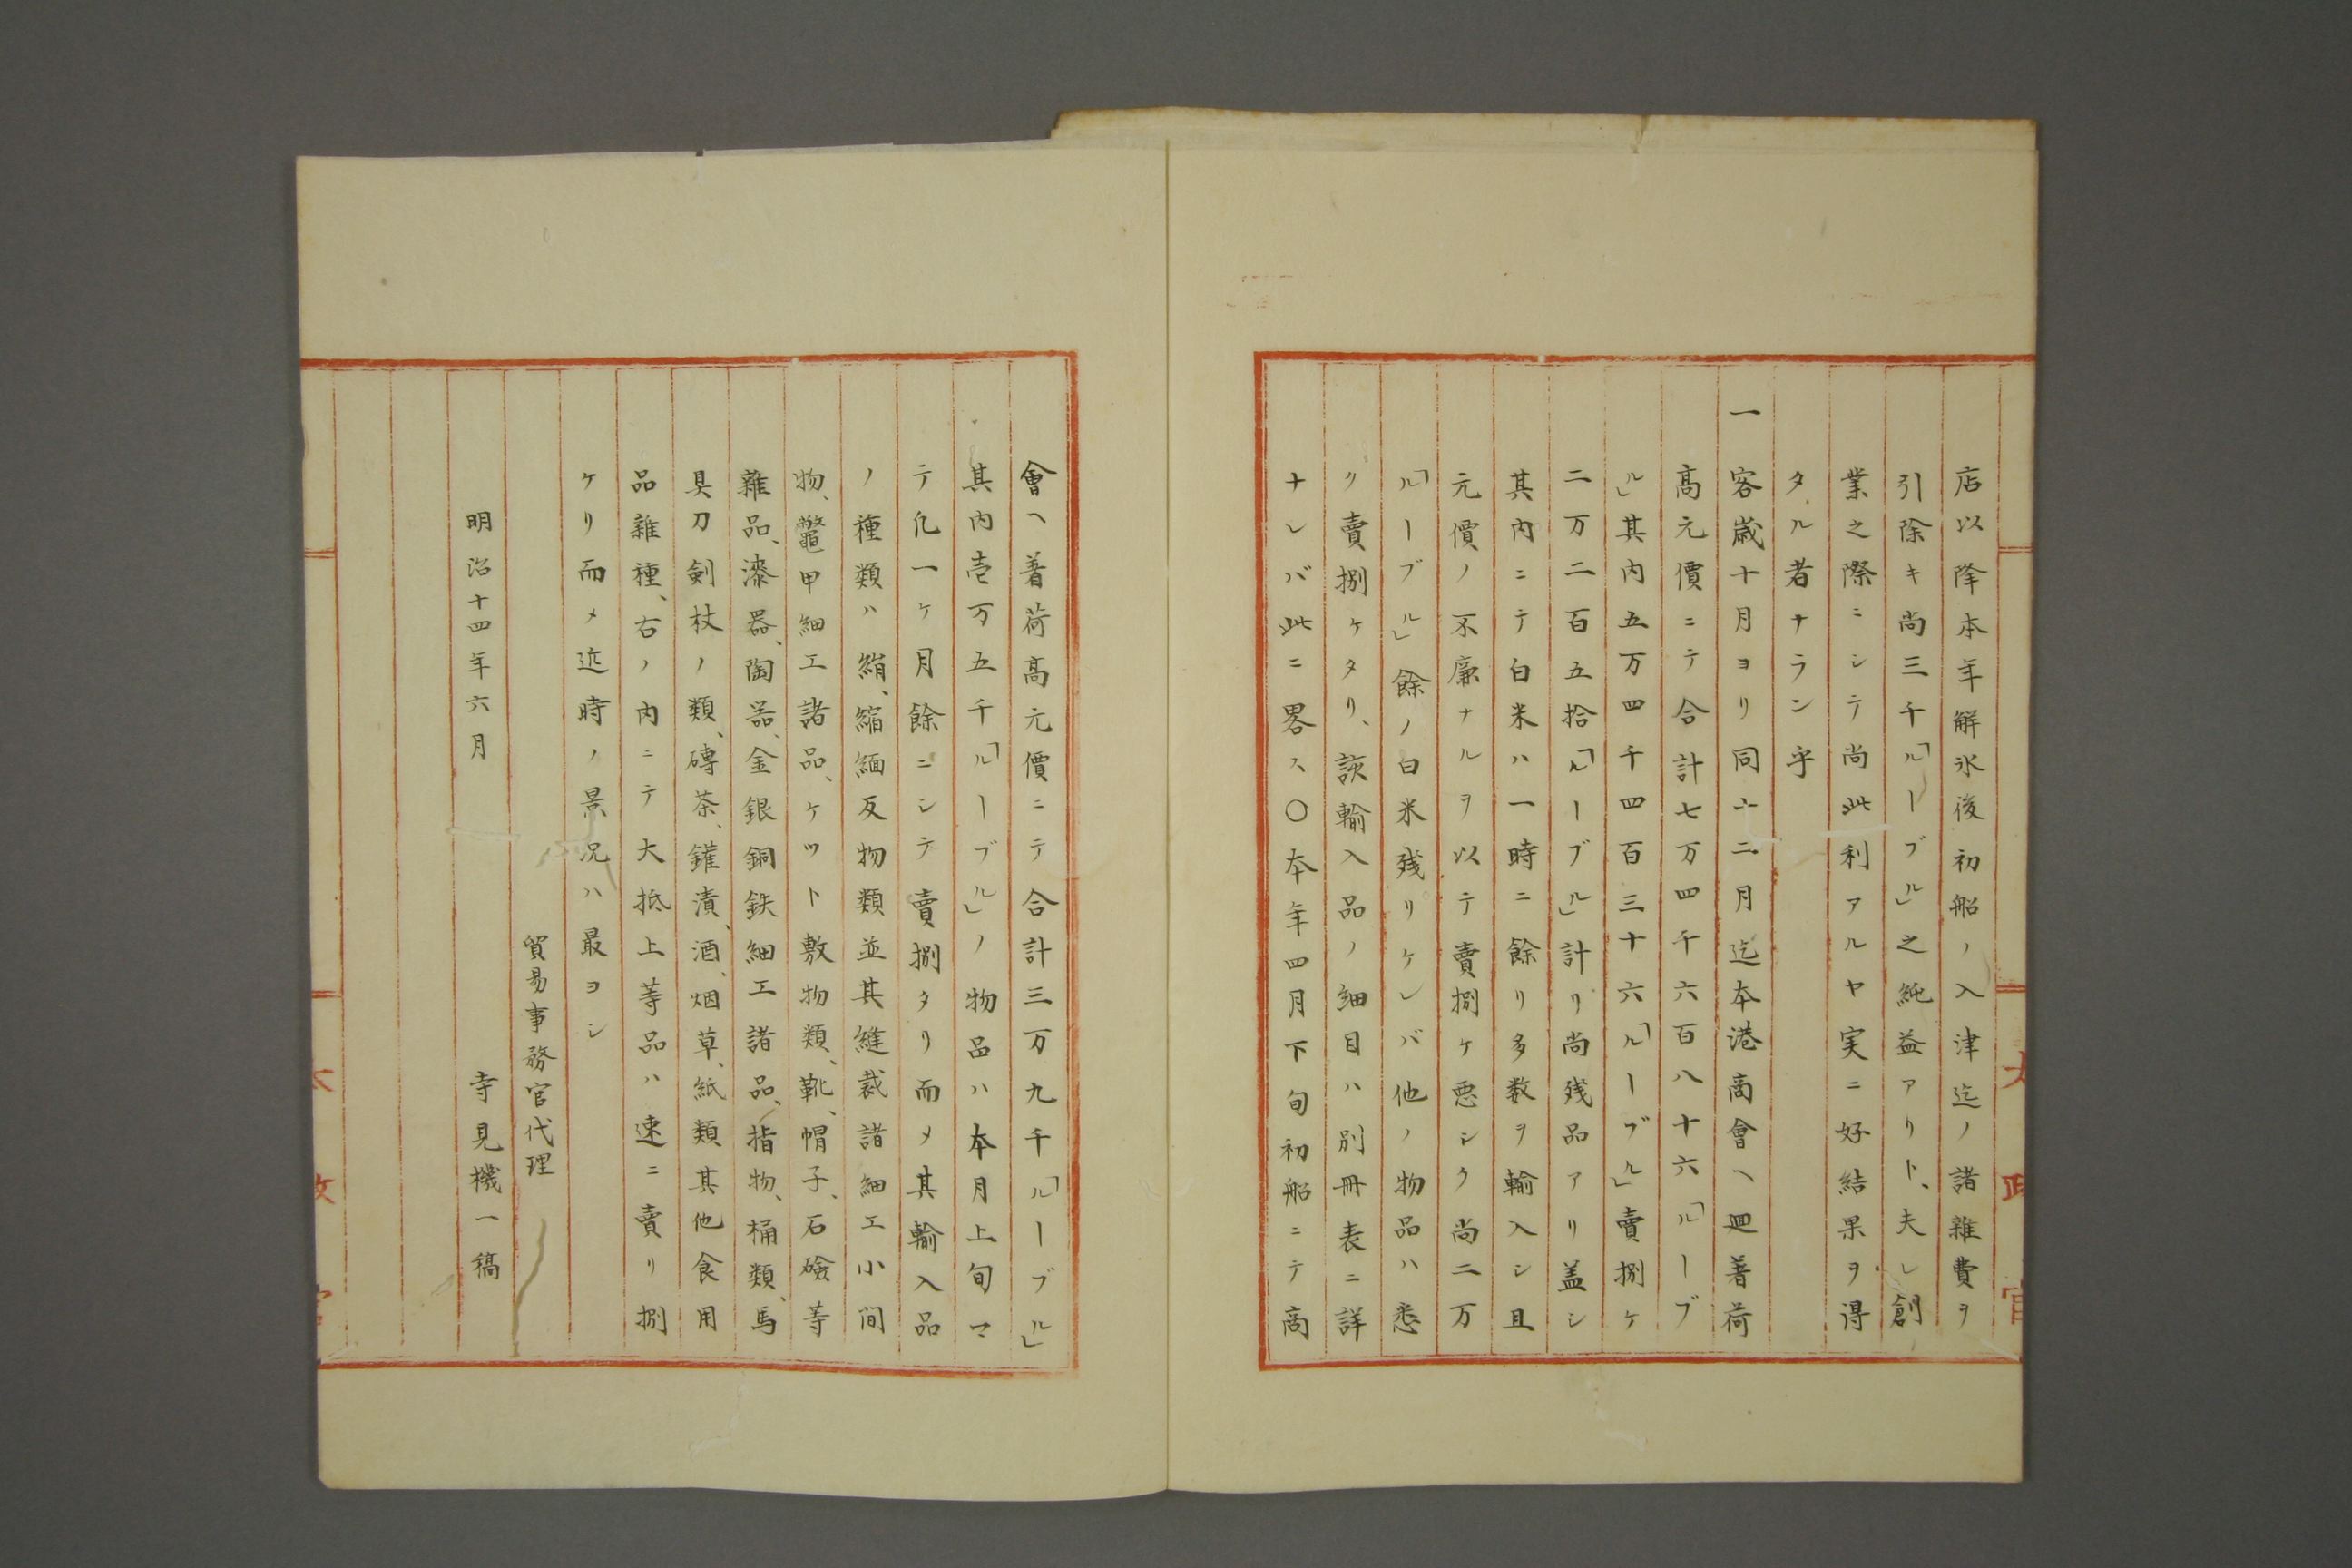 店以降本年解氷後初船ノ入津迄ノ諸雑費ヲ
引除キ尚三千「ルーブル」之純益アリト、夫レ創
業之際ニシテ尚此利アルヤ実ニ好結果ヲ得
タル者ナラン乎
一客歳十月ヨリ同十二月迄本港商會ヘ廻着荷
高元價ニテ合計七万四千六百八十六「ルーブ
ル」其内五万四千四百三十六「ルーブル」賣捌ケ
二万二百五拾「ルーブル」計リ尚残品アリ盖シ
其内ニテ白米ハ一時ニ餘リ多数ヲ輸入シ且
元價ノ不廉ナルヲ以テ賣捌ケ悪シク尚二万
「ルーブル」餘ノ白米残リケレバ他ノ物品ハ悉
ク賣捌ケタリ、該輸入品ノ細目ハ別冊表ニ詳
ナレバ此ニ畧ス〇本年四月下旬初船ニテ商
會ヘ着荷高元價ニテ合計三万九千「ルーブル」
其内壱万五千「ルーブル」ノ物品ハ本月上旬マ
テ凡一ケ月餘ニシテ賣捌タリ而メ其輸入品
ノ種類ハ絹、縮緬反物類並其縫裁諸細工小間
物、鼈甲細工諸品、ケット敷物類、靴、帽子、石鹸等
雜品、漆器、陶器、金銀銅鉄細工諸品、指物、桶類、馬
具刀剣杖ノ類、磚茶、鑵漬、酒、烟草、紙類其他食用
品雜種、右ノ内ニテ大抵上等品ハ速ニ賣リ捌
ケリ而メ近時ノ景況ハ最ヨシ
貿易事務官代理
明治十四年六月　寺見機一稿
太政官